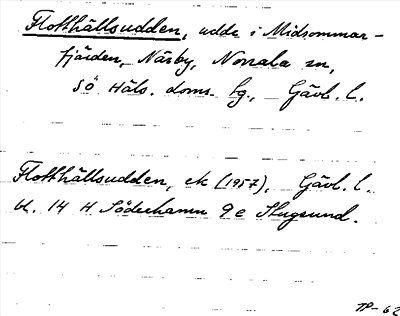 Flotthällsudden, udde i Midsommar-
fjärden, Närby, Norrala sn,
Sö Häls. doms. fg., Gävl. l.
Flotthällsudden, ek (1957), Gävl. l.
bl. 14 H Söderhamn 9 e Skugsund.
TP-62